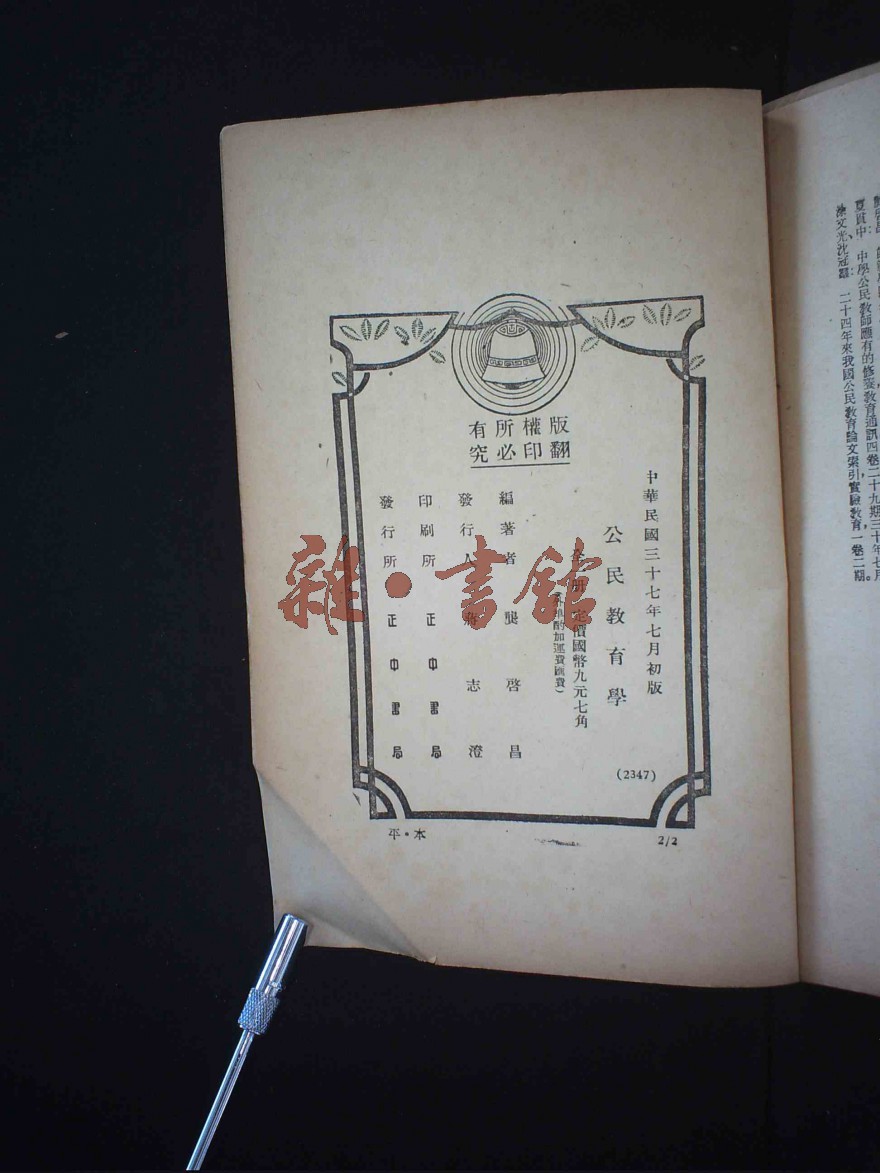 版權所有
翻印必究
中華民國三十七年七月初版
公民教育學
全一册 定價國幣九元七角
(外埠酌加運費匯費)
編著者 龔啓昌
發行人 蔣志澄
印刷所 正中書局
發行所 正中書局
(2347)
平•本
2/2
雜•書館
夏貫中 中學公民教師應有的修養教育通訊四卷二十九期三十年七月
涂文光、沈冠羣：二十四年來我國公民教育論文索引實驗教育，一卷二期。